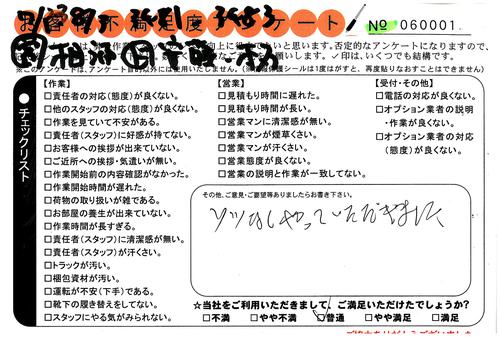 お客様不満足度アンケート
№ 060001
否定的なアンケートになりますので、
思います。✓印は、いくつでも結構です。
※このアンケートは、アンケート目的以外には使用いたしません。(※情報保護シールは1度はがすと、再度貼りなおすことはできません)
チェックリスト
【作業】
□責任者の対応(態度)が良くない。
□他のスタッフの対応(態度)が良くない。
□作業を見ていて不安がある。
□責任者(スタッフ)に好感が持てない。
□お客様への挨拶が出来ていない。
□ご近所への挨拶・気遣いが無い。
□作業開始前の内容確認がなかった。
□作業開始時間が遅れた。
□荷物の取り扱いが雑である。
□お部屋の養生が出来ていない。
□作業時間が長すぎる。
□責任者(スタッフ)に清潔感が無い。
□責任者(スタッフ)が汗くさい。
□トラックが汚い。
□梱包資材が汚い。
□運転が不安(下手)である。
□靴下の履き替えをしてない。
□スタッフにやる気がみられない。
【営業】
□見積もり時間に遅れた。
□見積もり時間が長い。
□営業マンに清潔感が無い。
□営業マンが煙草くさい。
□営業マンが汗くさい。
□営業態度が良くない。
□営業の説明と作業が一致してない。
【受付・その他】
□電話の対応が良くない。
□オプション業者の説明
・作業が良くない。
□オプション業者の対応
(態度)が良くない。
その他、ご意見・ご要望等ありましたらお書き下さい。
ソツなくやっていただきました
☆当社をご利用いただきまして、ご満足いただけたでしょうか?
□不満 □やや不満 □普通 □やや満足 □満足